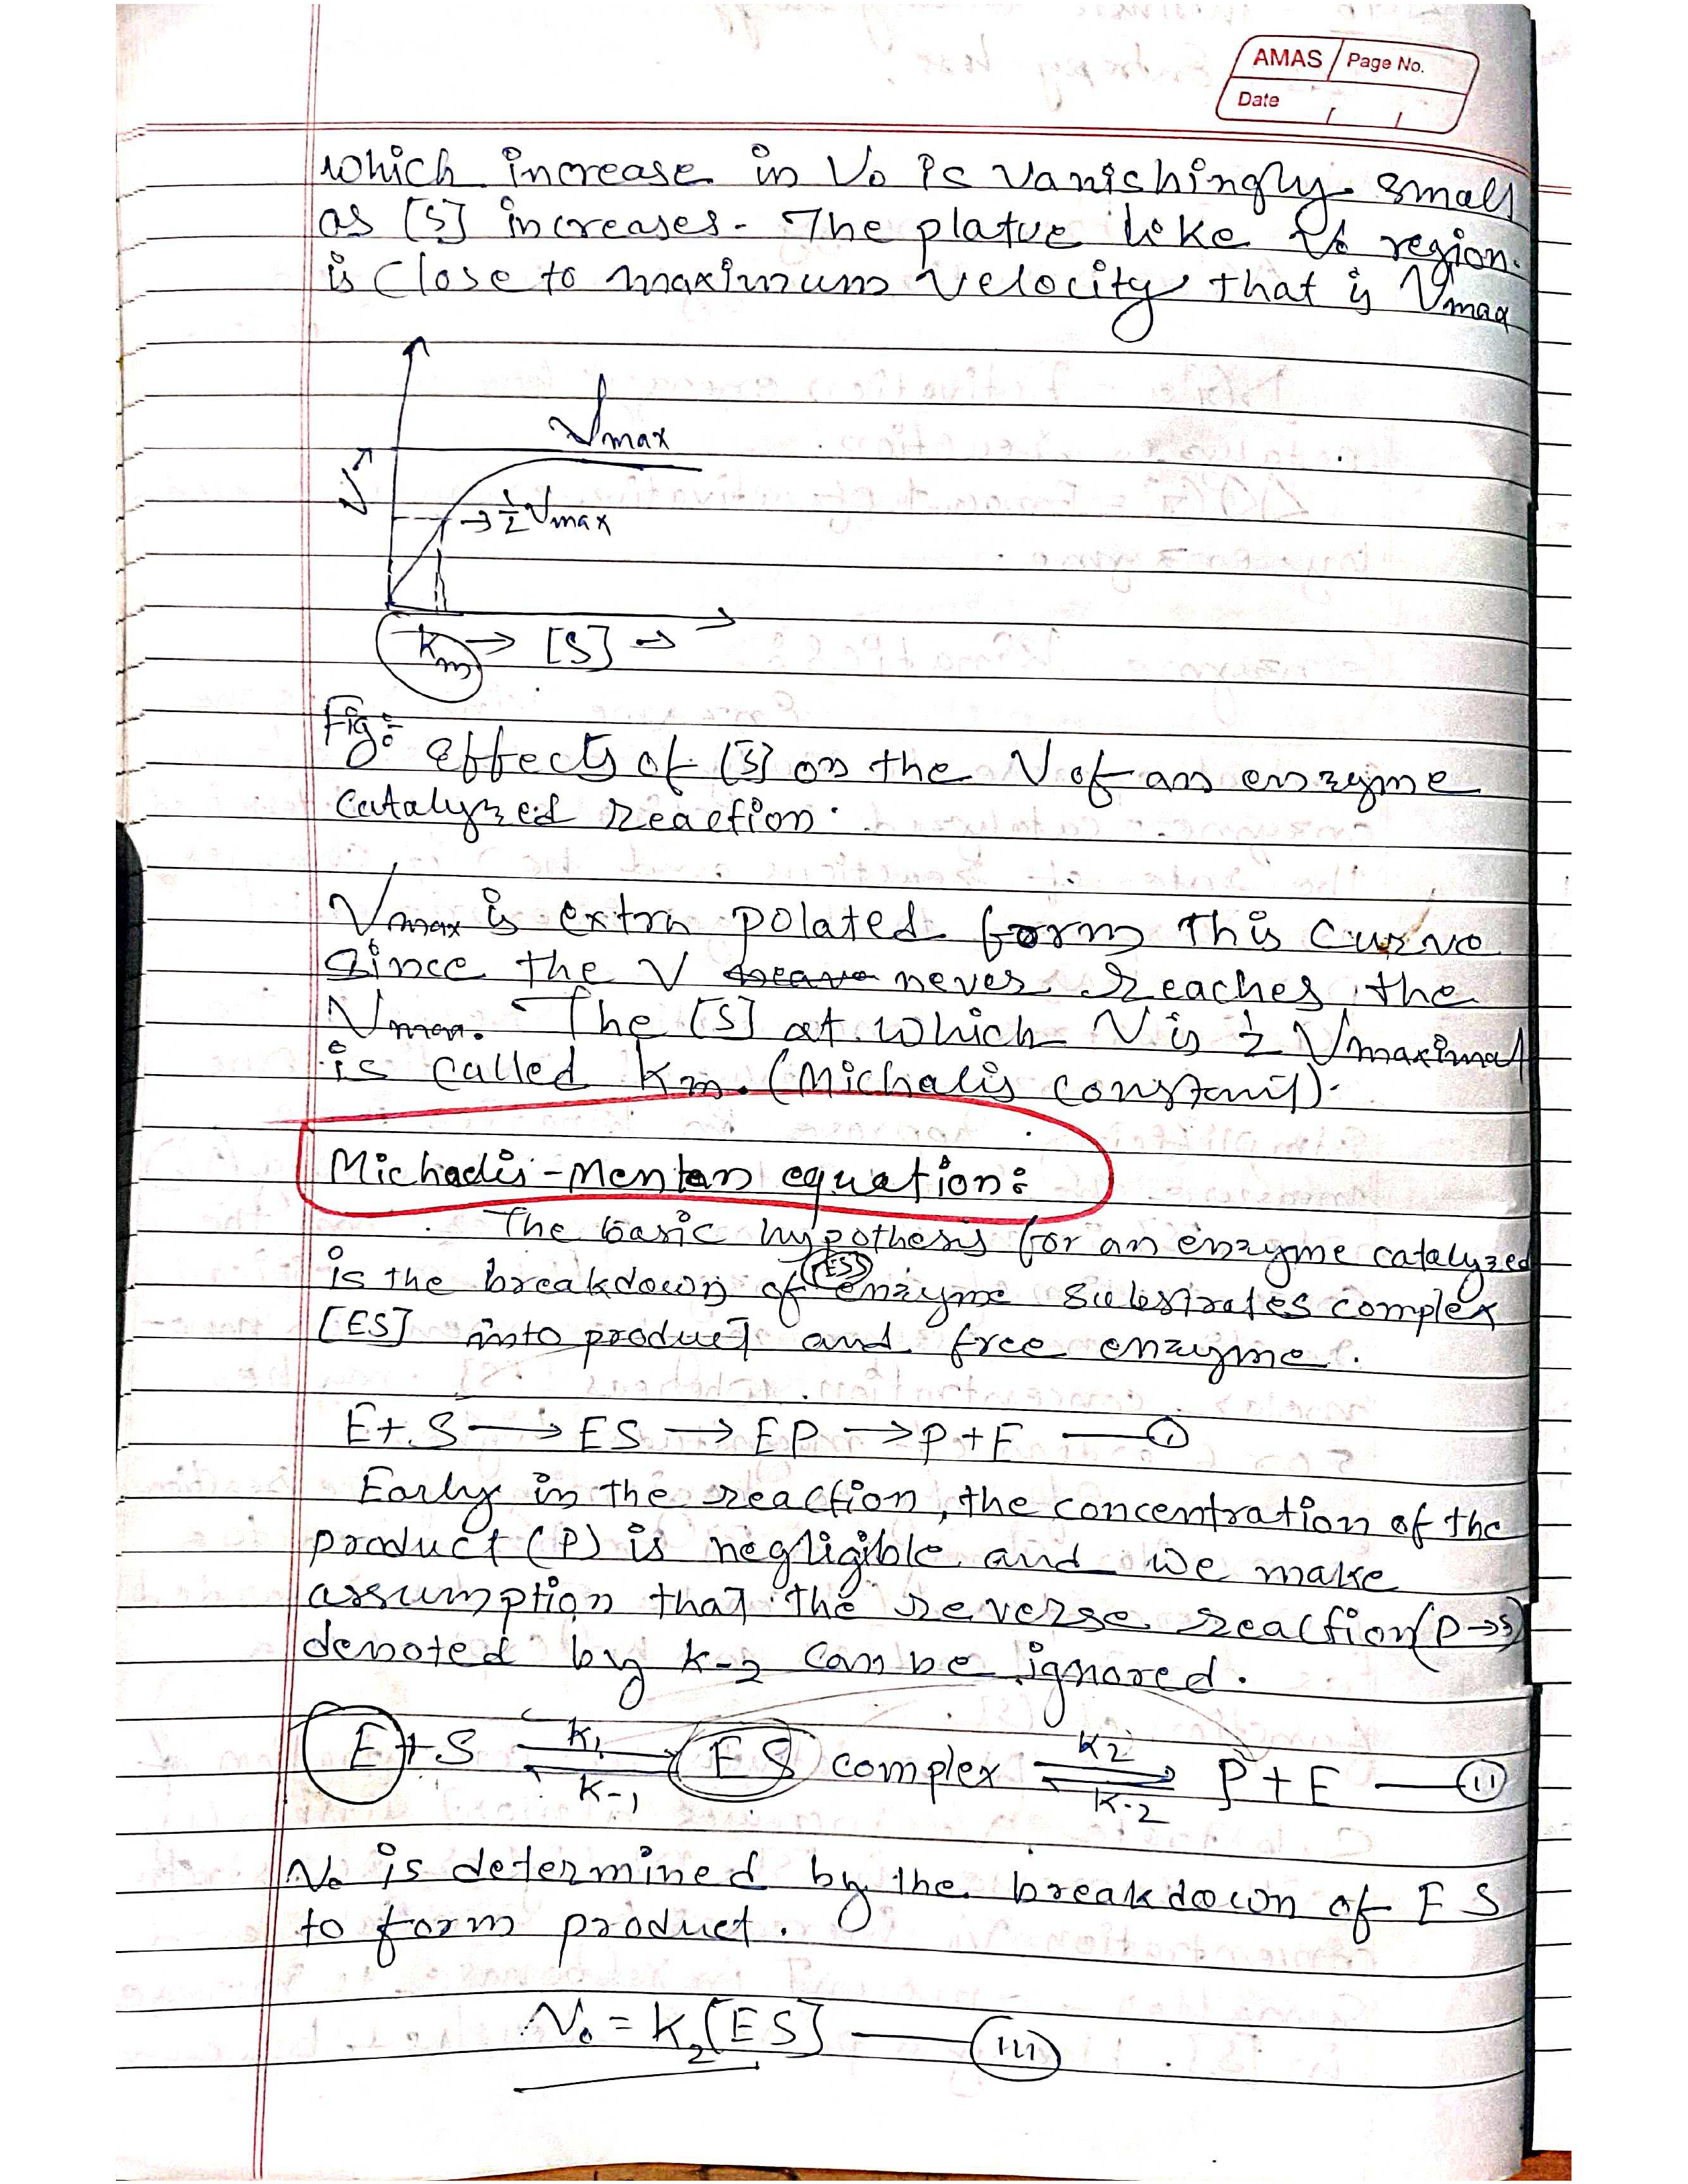 AMAS Page No.
Date / /
which increase in V₀ is vanishingly small
as [S] increases. The platue like region.
is close to maximum velocity that is Vmax
Vmax
V →
→ ½ Vmax
Km → [S] →
Fig: effects of [S] on the V of an enzyme
catalyzed reaction.
Vmax is extra polated form this curve
since the V never reaches the
Vmax. The [S] at which V is ½ Vmaximal
is called Km. (Michalis constant).
Michaelis-Mentan equation:
The basic hypothesis for an enzyme catalyzed
is the breakdown of (ES) enzyme substrates complex
[ES] into product and free enzyme.
E + S → ES → EP → P + E — (i)
Early in the reaction, the concentration of the
product (P) is negligible and we make
assumption that the reverse reaction (P→S)
denoted by K-2 can be ignored.
E + S ⇌ ES complex ⇌ P + E — (ii)
K1 K-1 K2 K-2
V₀ is determined by the breakdown of ES
to form product.
V₀ = K₂[ES] — (iii)